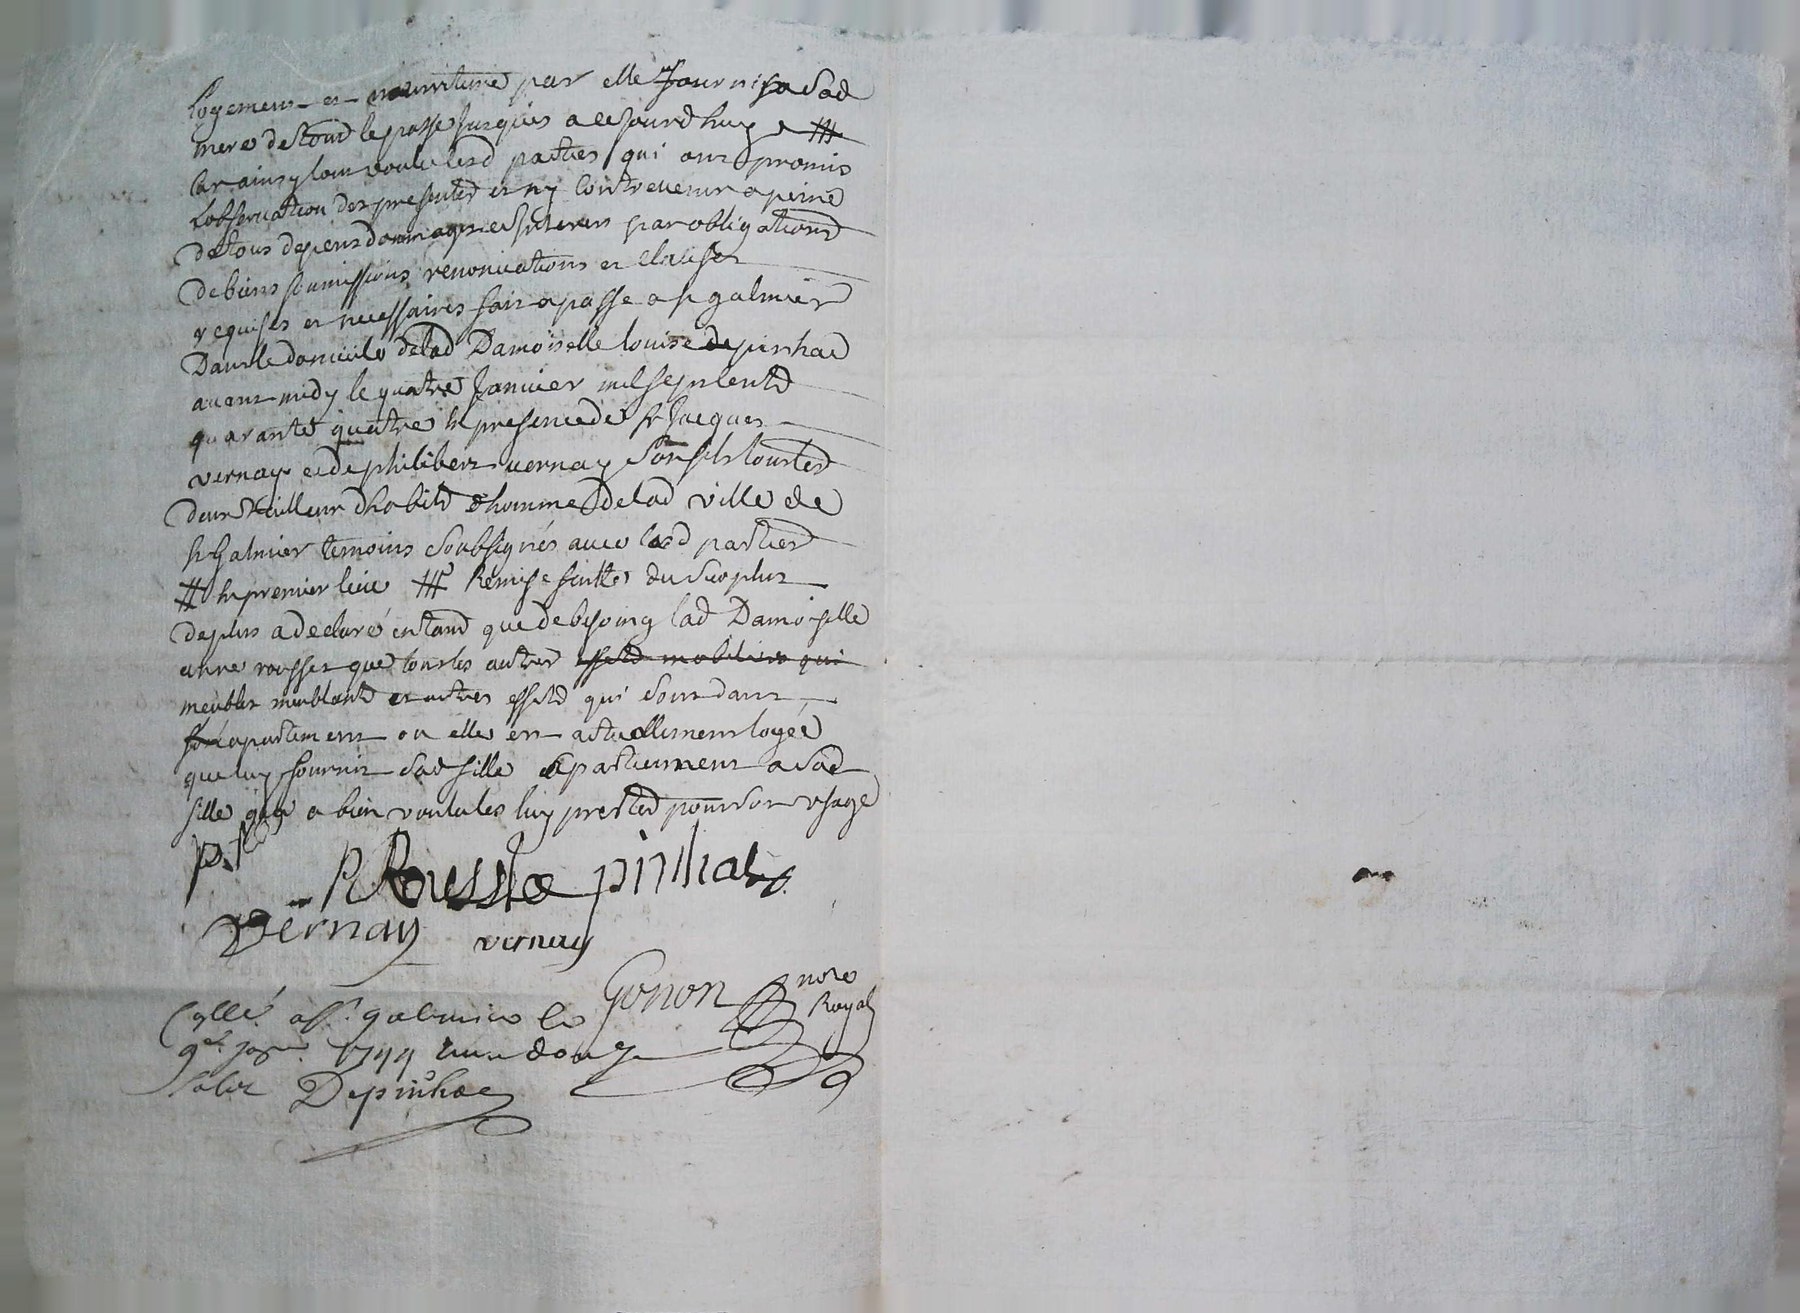 logement et nourriture par elle fournis a sad
mere de tout le passé jusques a ce jourdhuy #
Car ainsy lont voulu lesd parties qui ont promis
lobservation des presentes et ny contrevenir a peine
de tous depens dommages et interets par obligations
de biens soumissions renonciations et clauses
requises et necessaires fait et passé a st galmier
Dans le domicile de lad Damoiselle louise depinhac
avant midy le quatre Janvier mil sept cents
quarante quatre En presence de sr Jacques
vernay et de philibert vernay son fils tous les
deux tailleur dhabits dhomme de lad ville de
st Galmier temoins soubsignés avec lesd parties
# En premier lieu # Remise du surplus
de plus a declaré en tant que de besoing lad Damoiselle
anne rousset que tous les autres effets mobiliers qui
meubles meublants et autres effets qui sont dans
apartement ou elle est actuellement logée
que luy fournit sad fille apartiennent a sad
fille qui a bien voulu les luy prester pour son usage
Rousset pinhac
vernay vernay
Gonon nore
Royal
Collé a st galmier le
9e janer 1744 Reçu douze
sols Depinhac